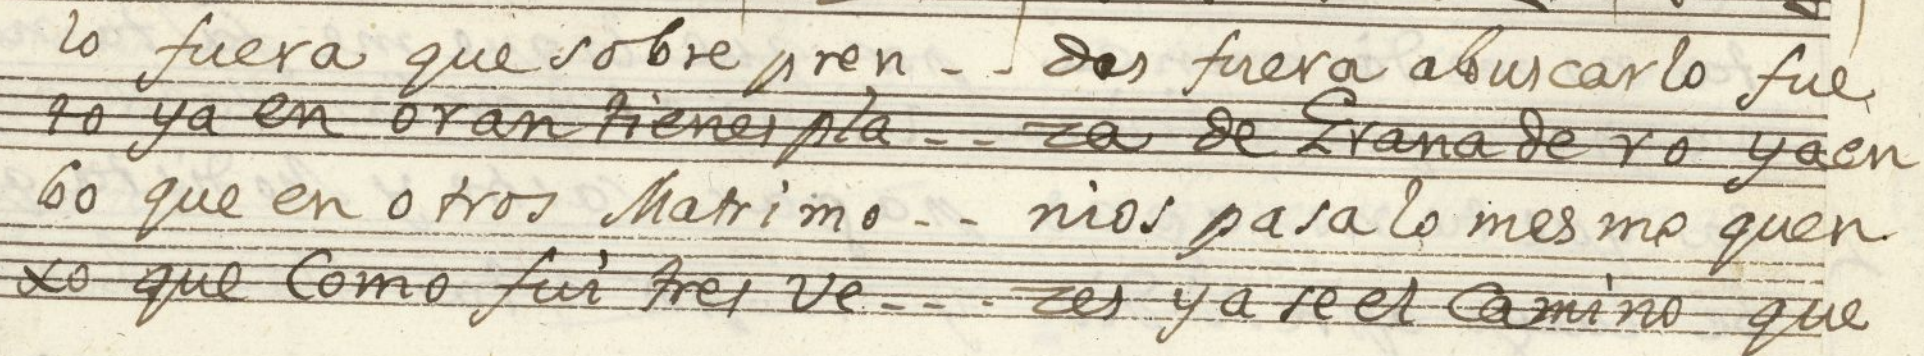 lo fuera que sobre pren - - das fuera abuscarlo fue
to ya en oran tienes pla - - za de Granadero ya en
bo que en otros Matrimo - - nios pasa lo mesmo quen
xo que Como fui tres ve - - - zes ya se el Camino que